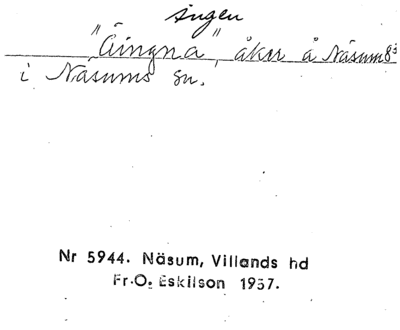 ingen
"Äingna", åker å Näsum 8³
i Näsums sn.
Nr 5944. Näsum, Villands hd
Fr.O. Eskilson 1937.